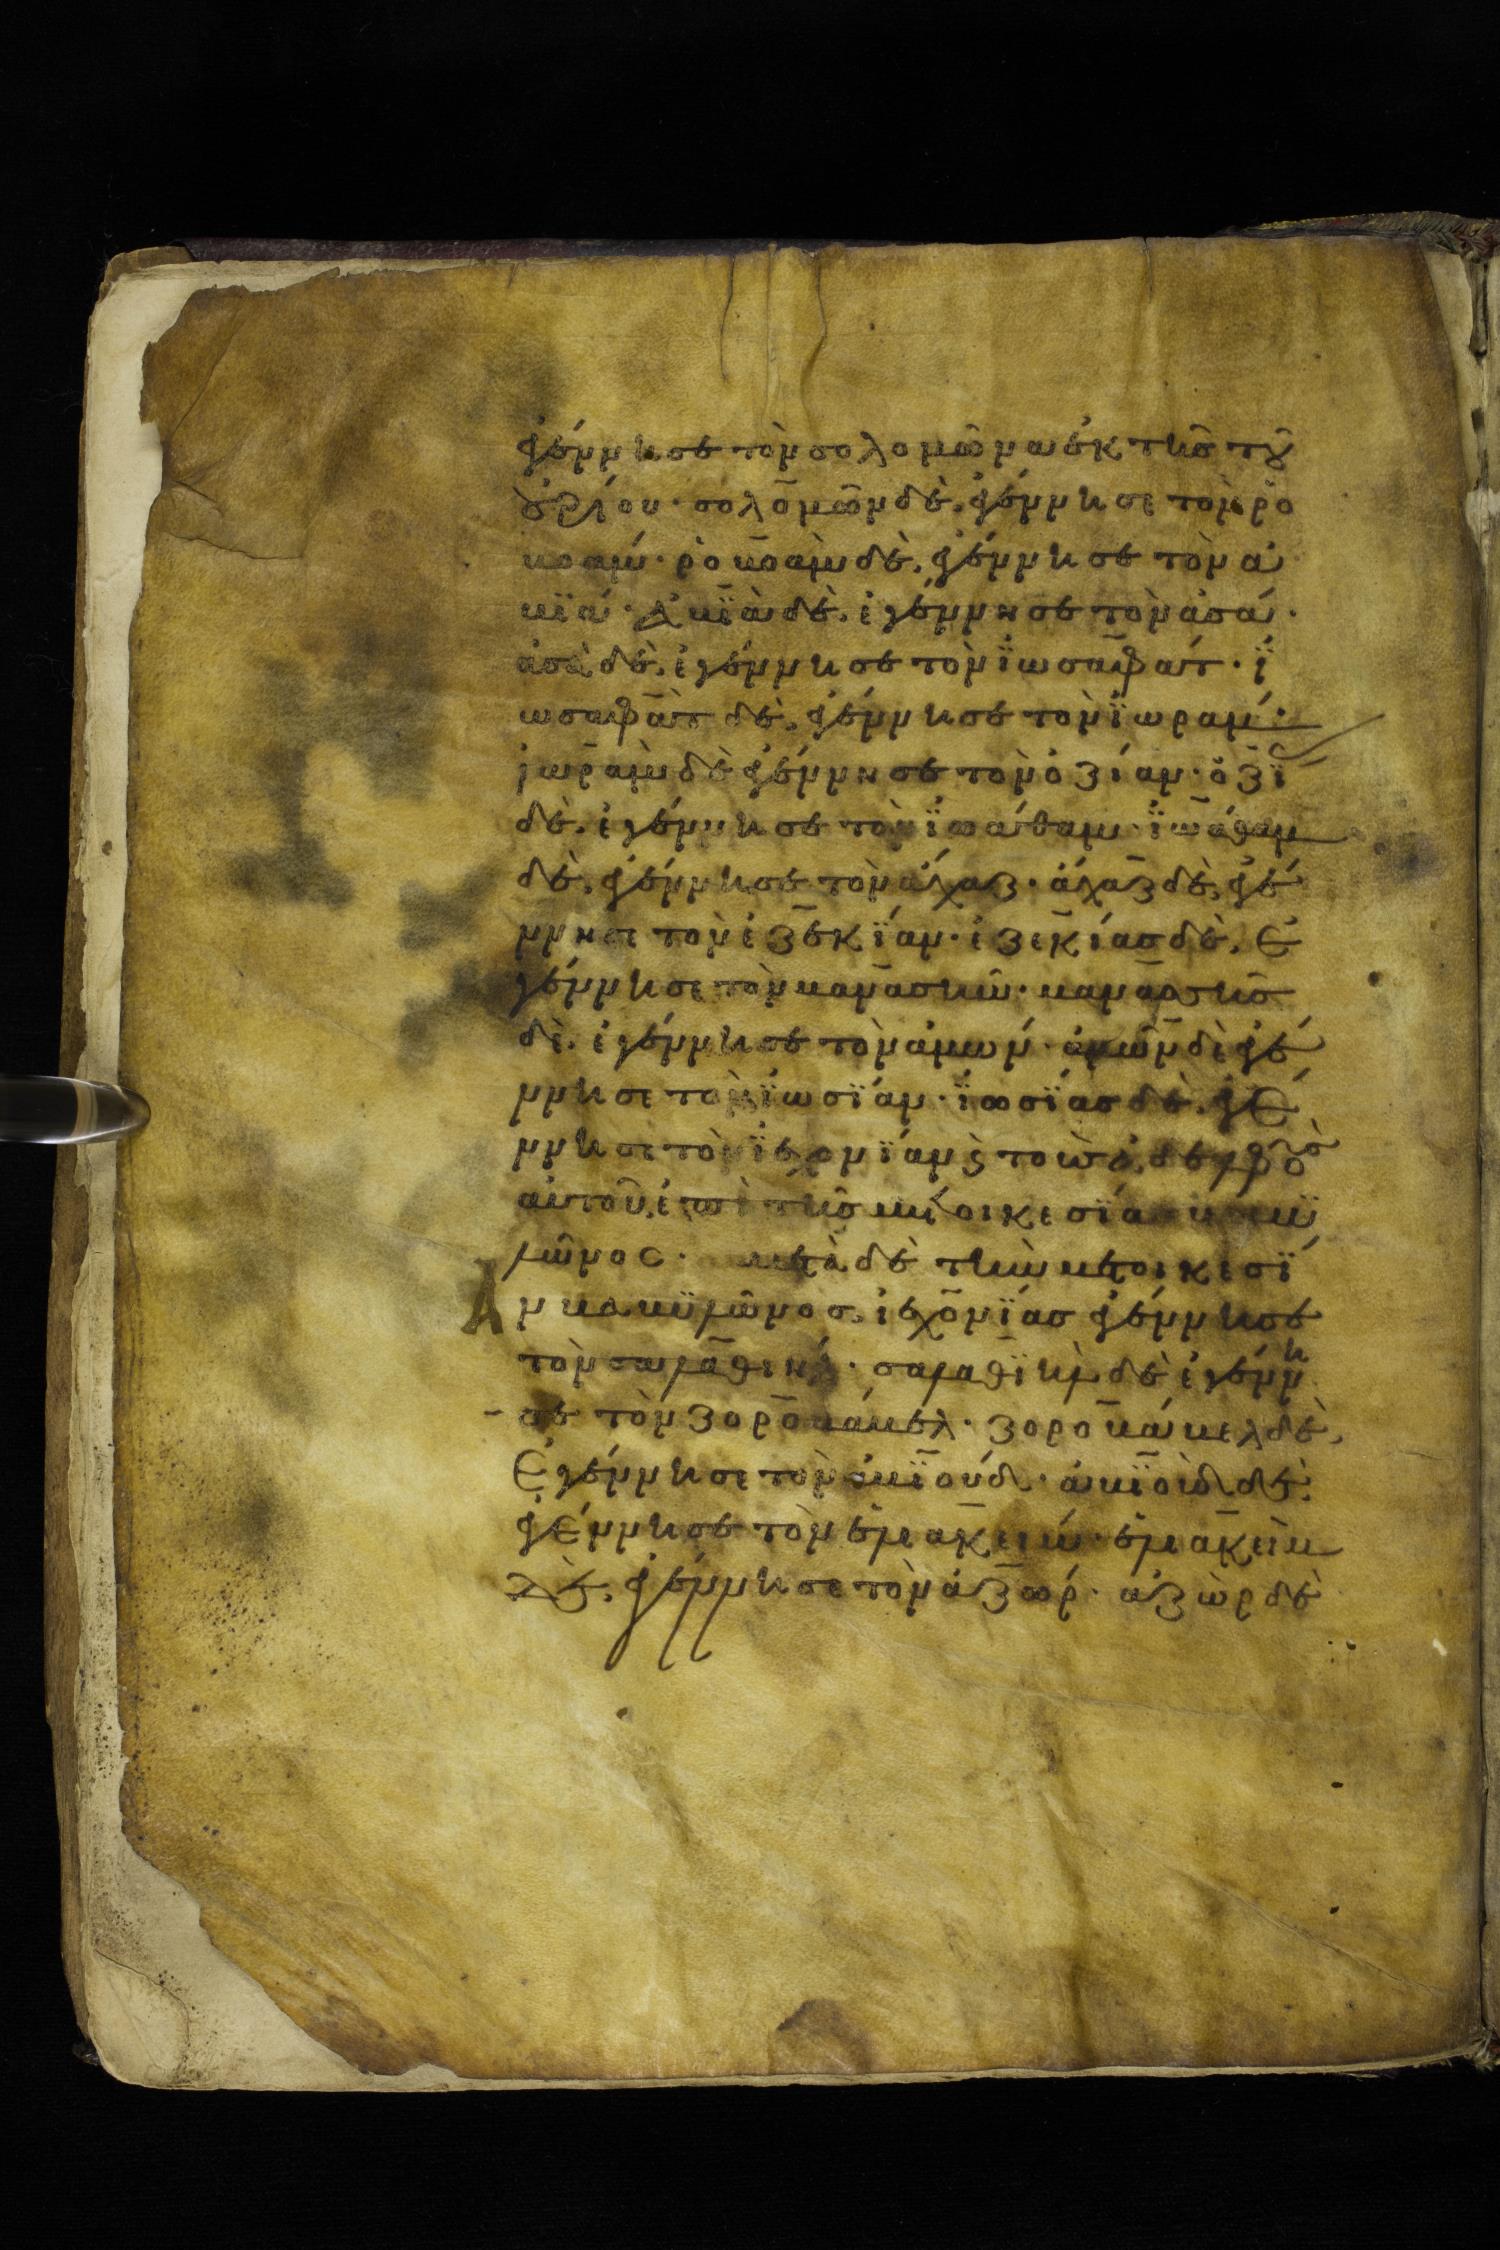 ἐγέννησε τὸν σολομῶνα ἐκ τῆς τοῦ
οὐρίου · σολομῶν δὲ, ἐγέννησε τὸν ρο
βοάμ · ροβοὰμ δὲ, ἐγέννησε τὸν ἀ
βϊά · ἀβϊὰ δὲ, ἐγέννησε τὸν ἀσά ·
ἀσὰ δὲ, ἐγέννησε τὸν ϊωσαφάτ · ϊ
ωσαφὰτ δὲ, ἐγέννησε τὸν ϊωράμ ·
ϊωρὰμ δὲ ἐγέννησε τὸν ὀζίαν · ὀζϊ
δὲ, ἐγέννησε τὸν ϊωάθαμ · ϊωάθαμ
δὲ, ἐγέννησε τὸν ἄχαζ · ἄχαζ δὲ, ἐγέ
ννησε τὸν ἐζεκϊαν · ἐζεκίας δὲ, ἐ
γέννησε τὸν μανασῆν · μανασσῆς
δὲ, ἐγέννησε τὸν ἀμών · ἀμῶν δὲ ἐγέ
ννησε τὸν ϊωσϊαν · ϊωσϊας δὲ, ἐγέ
ννησε τὸν ϊεχονϊαν ϗ τοὺς ἀδελφοὺς
αὐτοῦ, ἐπὶ τῆς μετοικεσϊας βαβυ
λῶνος · μετὰ δὲ τὴν μετοικεσϊ
αν βαβυλῶνος, ϊεχονϊας ἐγέννησε
τὸν σαλαθιήλ · σαλαθϊὴλ δὲ ἐγέννη
σε τὸν ζοροβάβελ · ζοροβάβελ δὲ,
ἐγέννησε τὸν ἀβϊούδ · ἀβϊοὺδ δὲ,
ἐγέννησε τὸν ἐλιακείμ · ἐλιακεὶμ
δὲ, ἐγέννησε τὸν ἀζώρ · ἀζὼρ δὲ